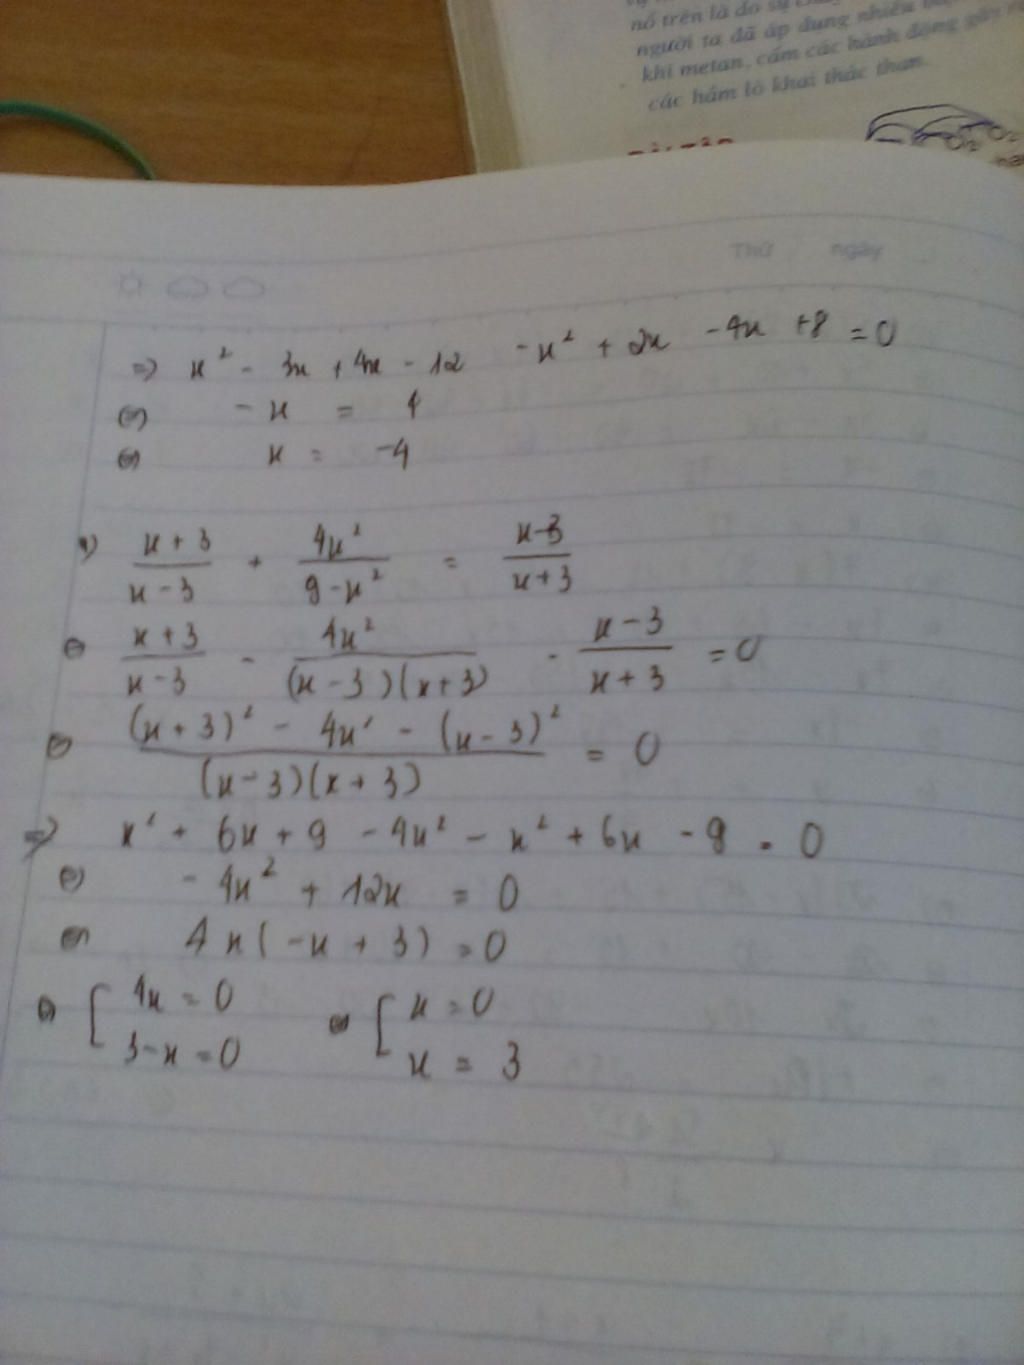 nổ trên là do sự
người ta đã áp dụng nhiều
khí metan, cấm các hành động gây
các hầm lò khai thác than.
Thứ ngày
=> x² - 3x + 4x - 12 - x² + 2x - 4x + 8 = 0
<=> - x = 4
<=> x = -4
x + 3 / x - 3 + 4x² / 9 - x² = x - 3 / x + 3
<=> x + 3 / x - 3 - 4x² / (x - 3)(x + 3) - x - 3 / x + 3 = 0
<=> (x + 3)² - 4x² - (x - 3)² / (x - 3)(x + 3) = 0
=> x² + 6x + 9 - 4x² - x² + 6x - 9 = 0
<=> - 4x² + 12x = 0
<=> 4x(-x + 3) = 0
<=> [ 4x = 0 <=> [ x = 0
3 - x = 0 x = 3